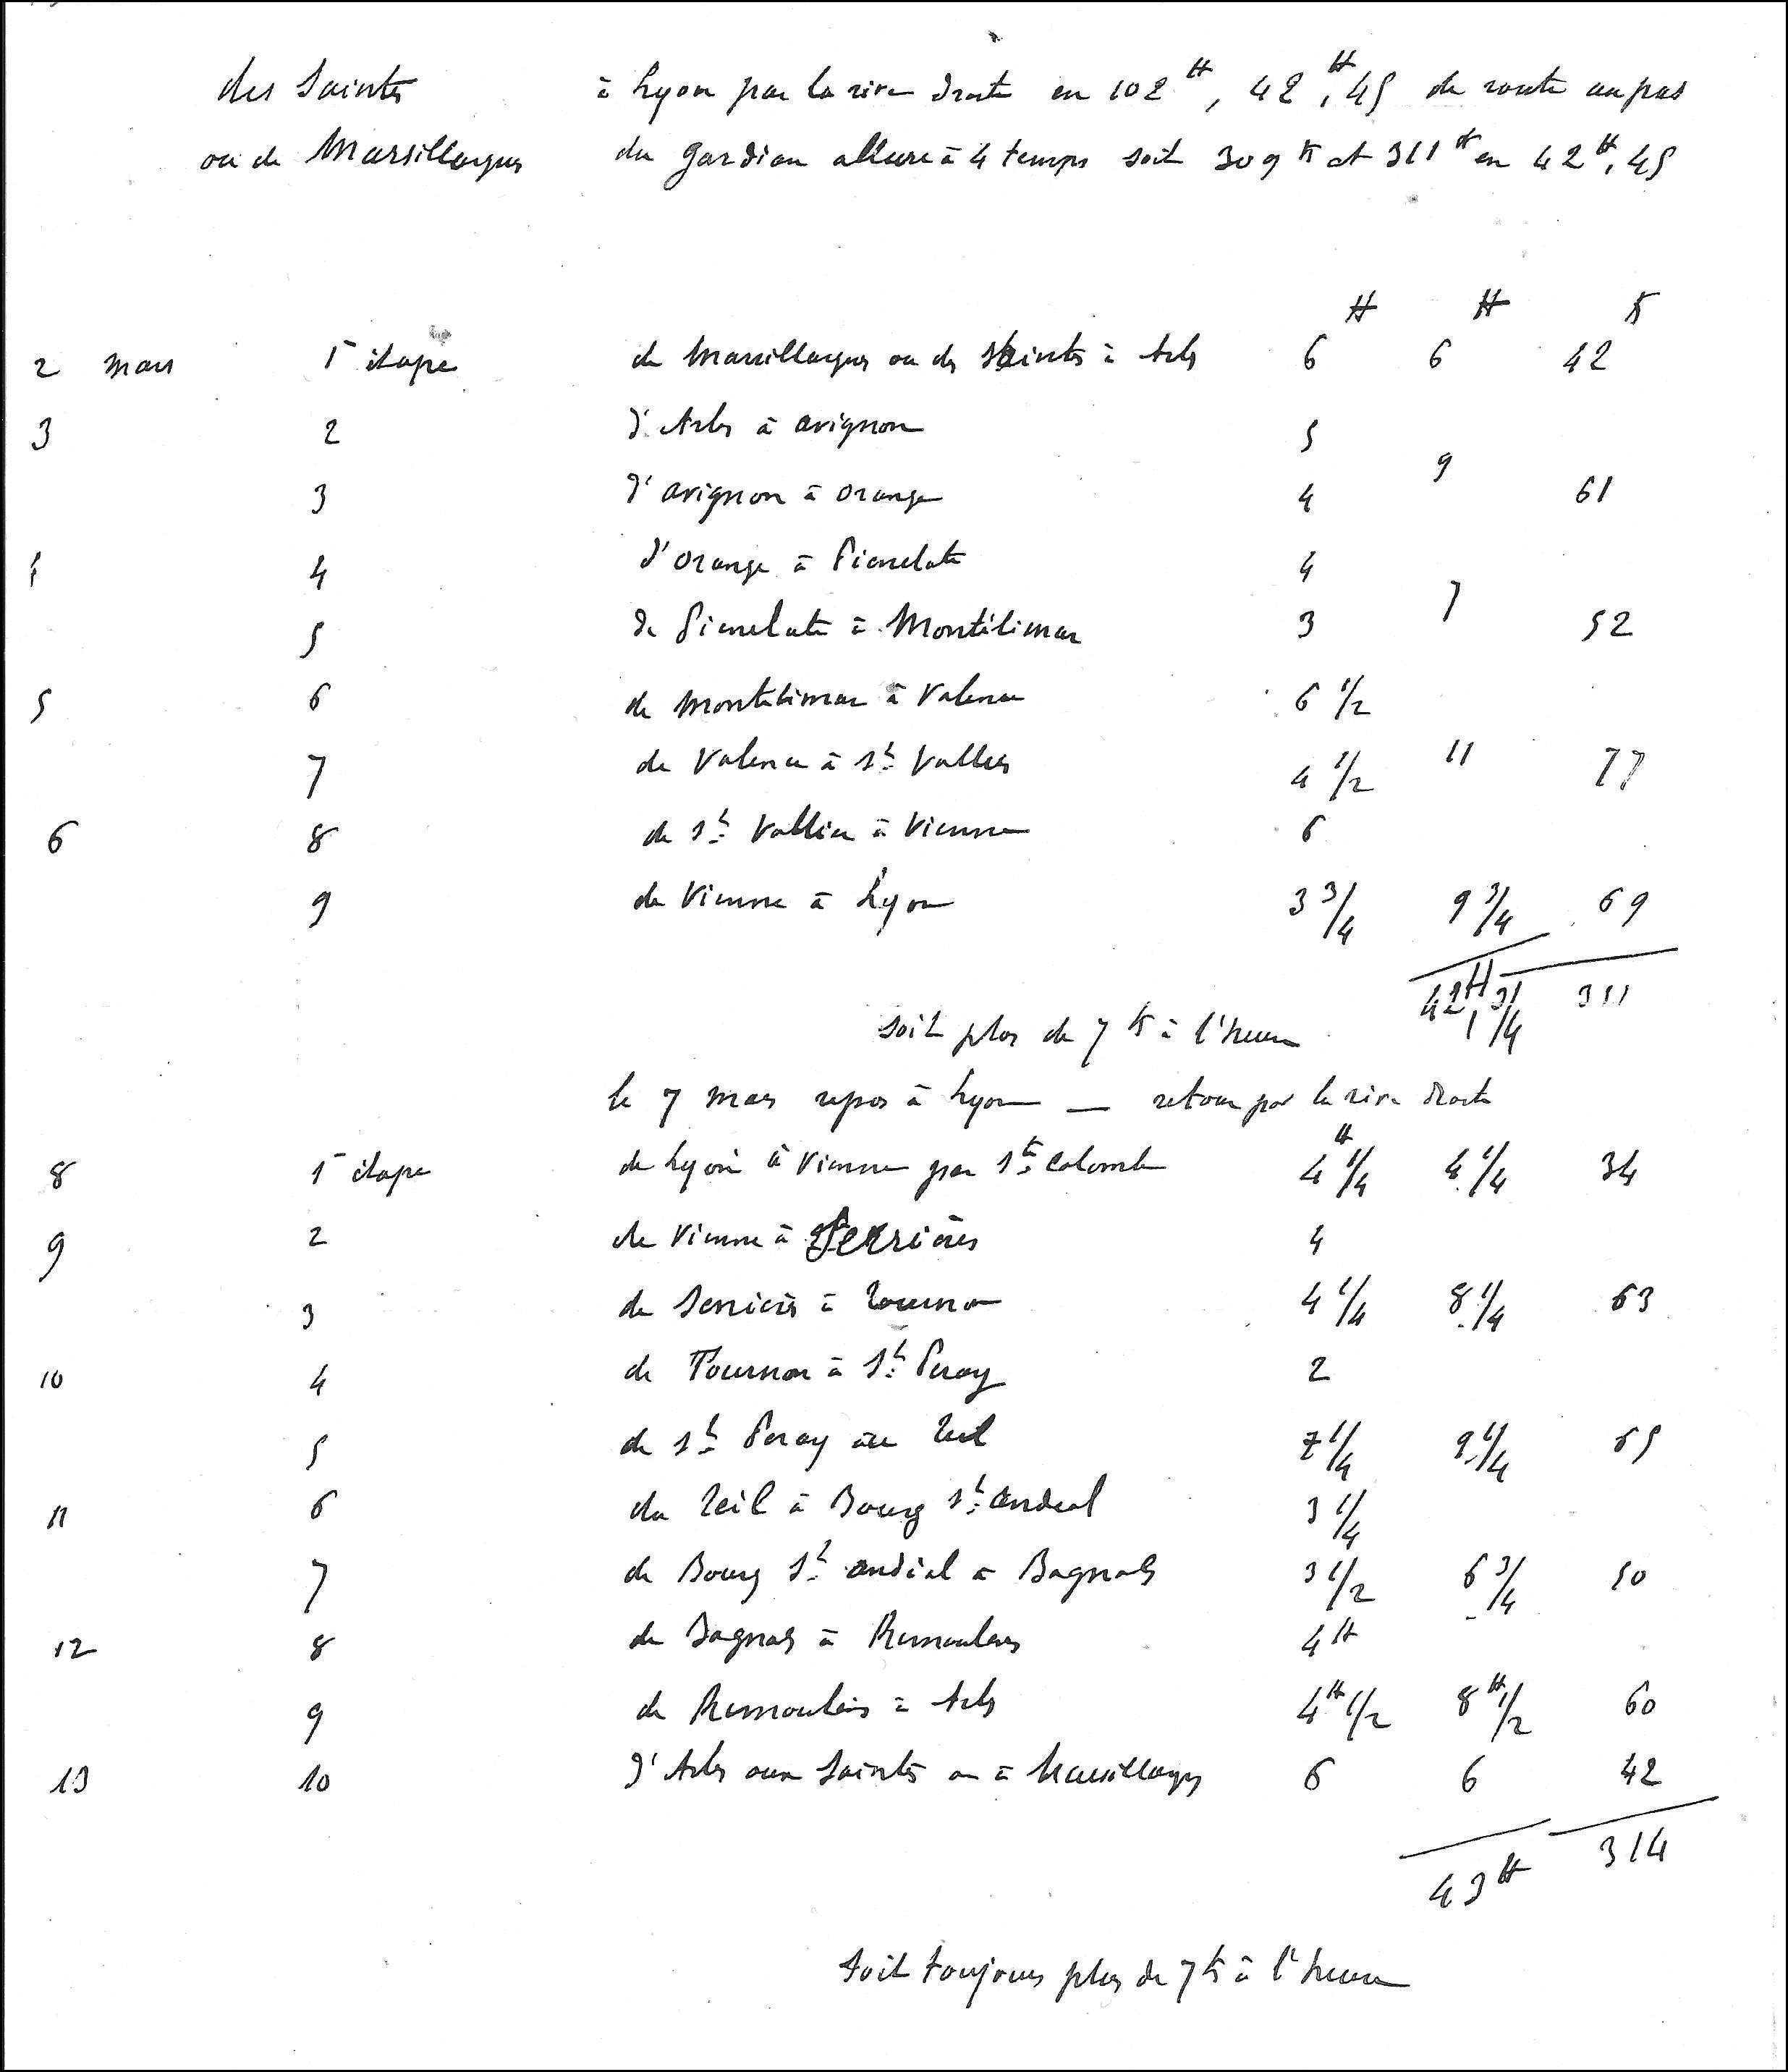 des Saintes à Lyon par la rive droite en 102 H, 42 H, 45 de route au pas
ou de Marsillargues du gardian allure à 4 temps soit 309 K et 311 K en 42 H, 45
H H K
2 mars 1r étape de Marsillargues ou des Saintes à Arles 6 6 42
3 2 d'Arles à avignon 5
9
3 d'avignon à orange 4 61
4 d'orange à Pierrelate 4
7
5 de Pierrelate à Montélimar 3 52
5 6 de Montelimar à Valence 6 1/2
7 de Valence à St Vallier 4 1/2 11 77
6 8 de St Vallier à Vienne 6
9 de Vienne à Lyon 3 3/4 9 3/4 69
42 H 3/4 311
soit plus de 7 K à l'heure
le 7 mars repos à Lyon — retour par la rive droite
H
8 1r étape de Lyon à Vienne par Ste Colombe 4 1/4 4 1/4 34
9 2 de Vienne à Serrières 4
3 de Serrières à Tournon 4 1/4 8 1/4 63
10 4 de Tournon à St Peray 2
5 de St Peray au Teil 7 1/4 9 1/4 65
11 6 du Teil à Bourg St andeol 3 1/4
7 de Bourg St andéol à Bagnols 3 1/2 6 3/4 50
12 8 de Bagnols à Remoulins 4 H
9 de Remoulins à Arles 4 H 1/2 8 H 1/2 60
13 10 d'Arles aux Saintes ou à Marsillargues 6 6 42
43 H 314
soit toujours plus de 7 K à l'heure